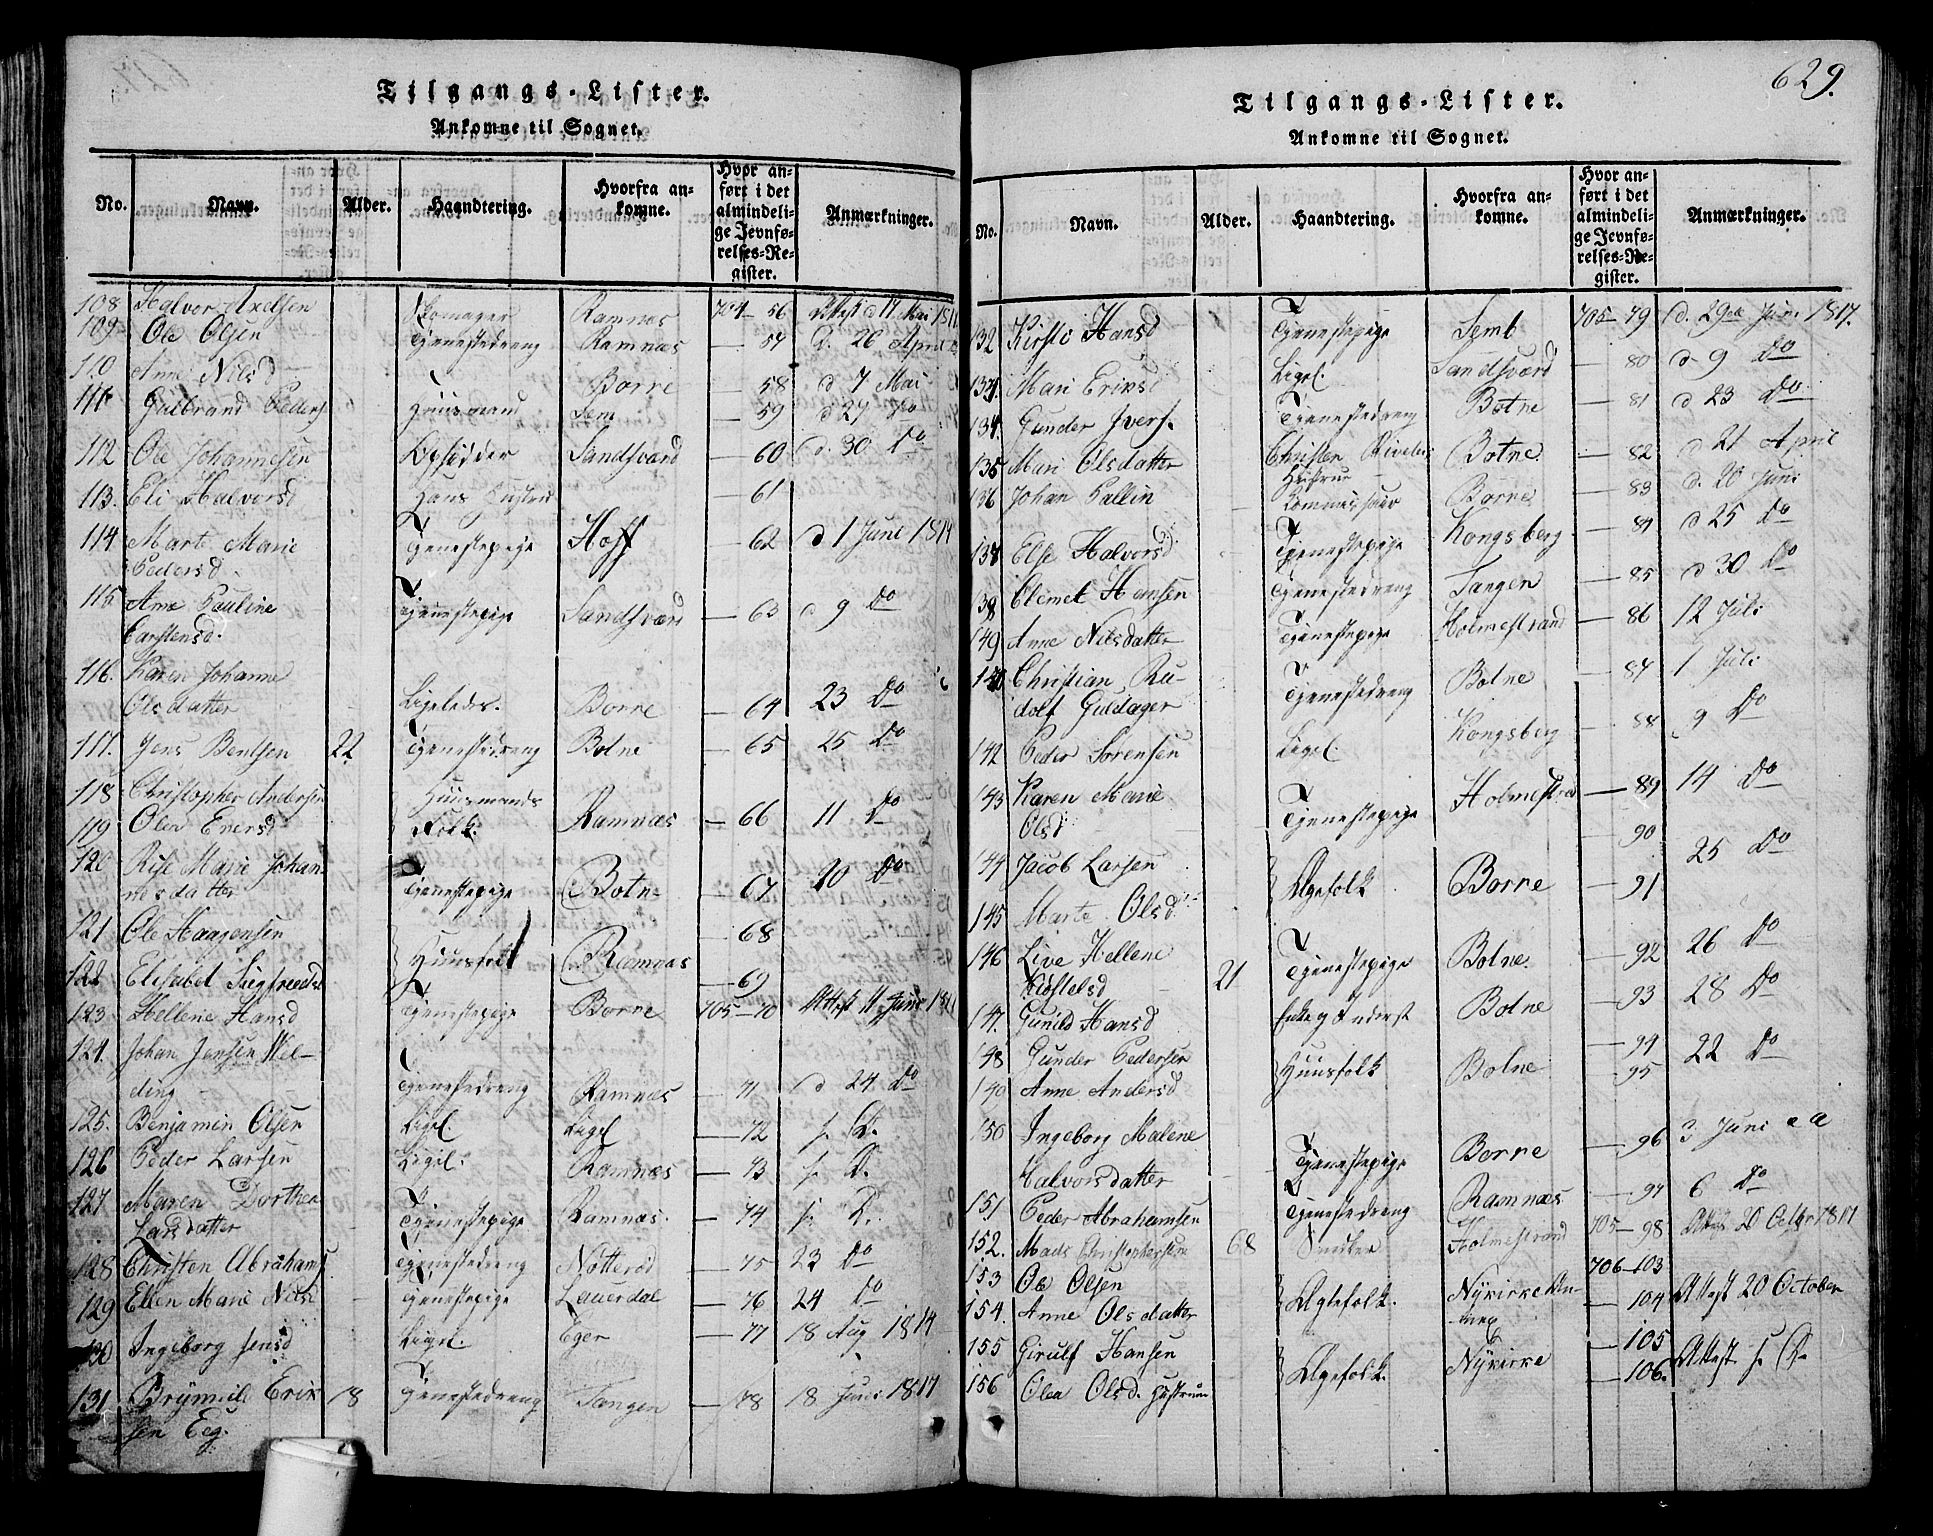 Tilgangs-Lister.
Ankomne til Sognet.
No. Navn. Alder. Haandtering. Hvorfra ankomne. Hvor anført i det almindelige Jevnførelses-Register. Anmærkninger.
108 Halvor Axelsen Skomager Ramnæs 704-56 Attest d 17 Mai
109 Ole Olsen Tjenestedreng Ramnæs — 57 d. 26 April
110 Anne Nilsd Borre — 58 d 7 Mai
111 Gulbrand Peders Huusmand Sem — 59 d 27 Do
112 Ole Johannesen Opsidder Sandsværd — 60 d. 30 Do
113. Eli Halvorsd Hans Hustru — 61
114 Marte Marie Tjenestepige Hoff — 62 d 1 Juni 1817
Pedersd
115 Anne Pauline Tjenestepige Sandsværd — 63 d 9 Do
Carstensd.
116. Karen Johanne
Olsdatter Ligeledes. Borre — 64 23 Do
117. Jens Bentsen 22 Tjenestedreng Botne — 65 25 Do
118 Christopher Andersen Huusmands
119 Olea Enersd Folk. Ramnæs — 66 11 Do
120 Rise Marie Johan-
nesdatter Tjenestepige Botne — 67 20 Do
121 Ole Haagensen — 68
122 Elisabet Siegfreedsd Huusfolk Ramnæs — 69
123 Hellene Hansd Tjenestepige Borre 705-70 Attest 11 Juni
124. Johan Jensen Wel-
ding Tjenestedreng Ramnæs — 71 d 24 Do
125. Benjamin Olsen Ligel. Ligel — 72 s. D.
126 Peder Larsen Ligel. Ramnæs — 73 s. D.
127 Maren Dorthea Tjenestepige Ramnæs. — 74 s. D.
Larsdatter
128 Christen Abrahams Tjenestedreng Nøtterød — 75 23 Do
129 Ellen Marie Nilsd Tjenestepige Lauerdal — 76 24 Do
130 Ingeborg Jensd Ligel. Eger — 77 18 Aug 1817
131 Brynnil Erik- 18 Tjenestedreng Tangen — 78 8 Juni 1817
sen Eeg.
629.
Tilgangs-Lister.
Ankomne til Sognet.
No. Navn. Alder. Haandtering. Hvorfra ankomne. Hvor anført i det almindelige Jevnførelses-Register. Anmærkninger.
132 Kirsti Hansd Tjenestepige Semb 705-79 d. 29de Juni 1817.
133 Mari Eriksd Ligel. Sandsværd — 80 d 9 Do
134. Gunder Ivers. Tjenestedreng Botne — 81 d 23 Do
135 Mari Olsdatter Christen Hustrue Botne — 82 d 21 April
136 Johan Pallin Borre — 83 d. 20 Juni
137 Else Halvorsd Tjenestepige Kongsberg — 84 d 25 Do
139 Clemet Hansen Tjenestedreng Tangen — 85 d 30 Do
149 Anne Nilsdatter Tjenestepige Holmestrand — 86 12 Juli
Christian Ru-
dolf Guldager Tjenestedreng Botne — 87 1 Juli
142 Peder Sørensen Ligel. Kongsberg — 88 9 Do
143 Karen Marie
Olsd Tjenestepige Holmestrand — 89 14 Do
144 Jacob Larsen — 90
145 Marte Olsd Ægtefolk Borre — 91 25 Do
146 Live Hellene Tjenestepige Botne. — 92 26 Do
21
147. Gunild Hansd Enke og Inderst Botne — 93 28 Do
148 Gunder Pedersen — 94
149 Anne Andersd Huusfolk Botne — 95 22 Do
150 Ingeborg Malene
Halvorsdatter Tjenestepige Borre — 96 3 Juni
151 Peder Abrahamsen Tjenestedreng Ramnæs — 97 6 Do
152. Mads Christophersen 68 Snedker Holmestrand 705-98 Attest 20 Octbr 1817
153 Ole Olsen 706-103
154. Anne Olsdatter Ægtefolk. Nykirke An-
nex — 104 Attest 20 October
155 Girulf Hansen — 105
156 Olea Olsd. Hustrue Ægtefolk. Nykirke — 106. Attest s. D.